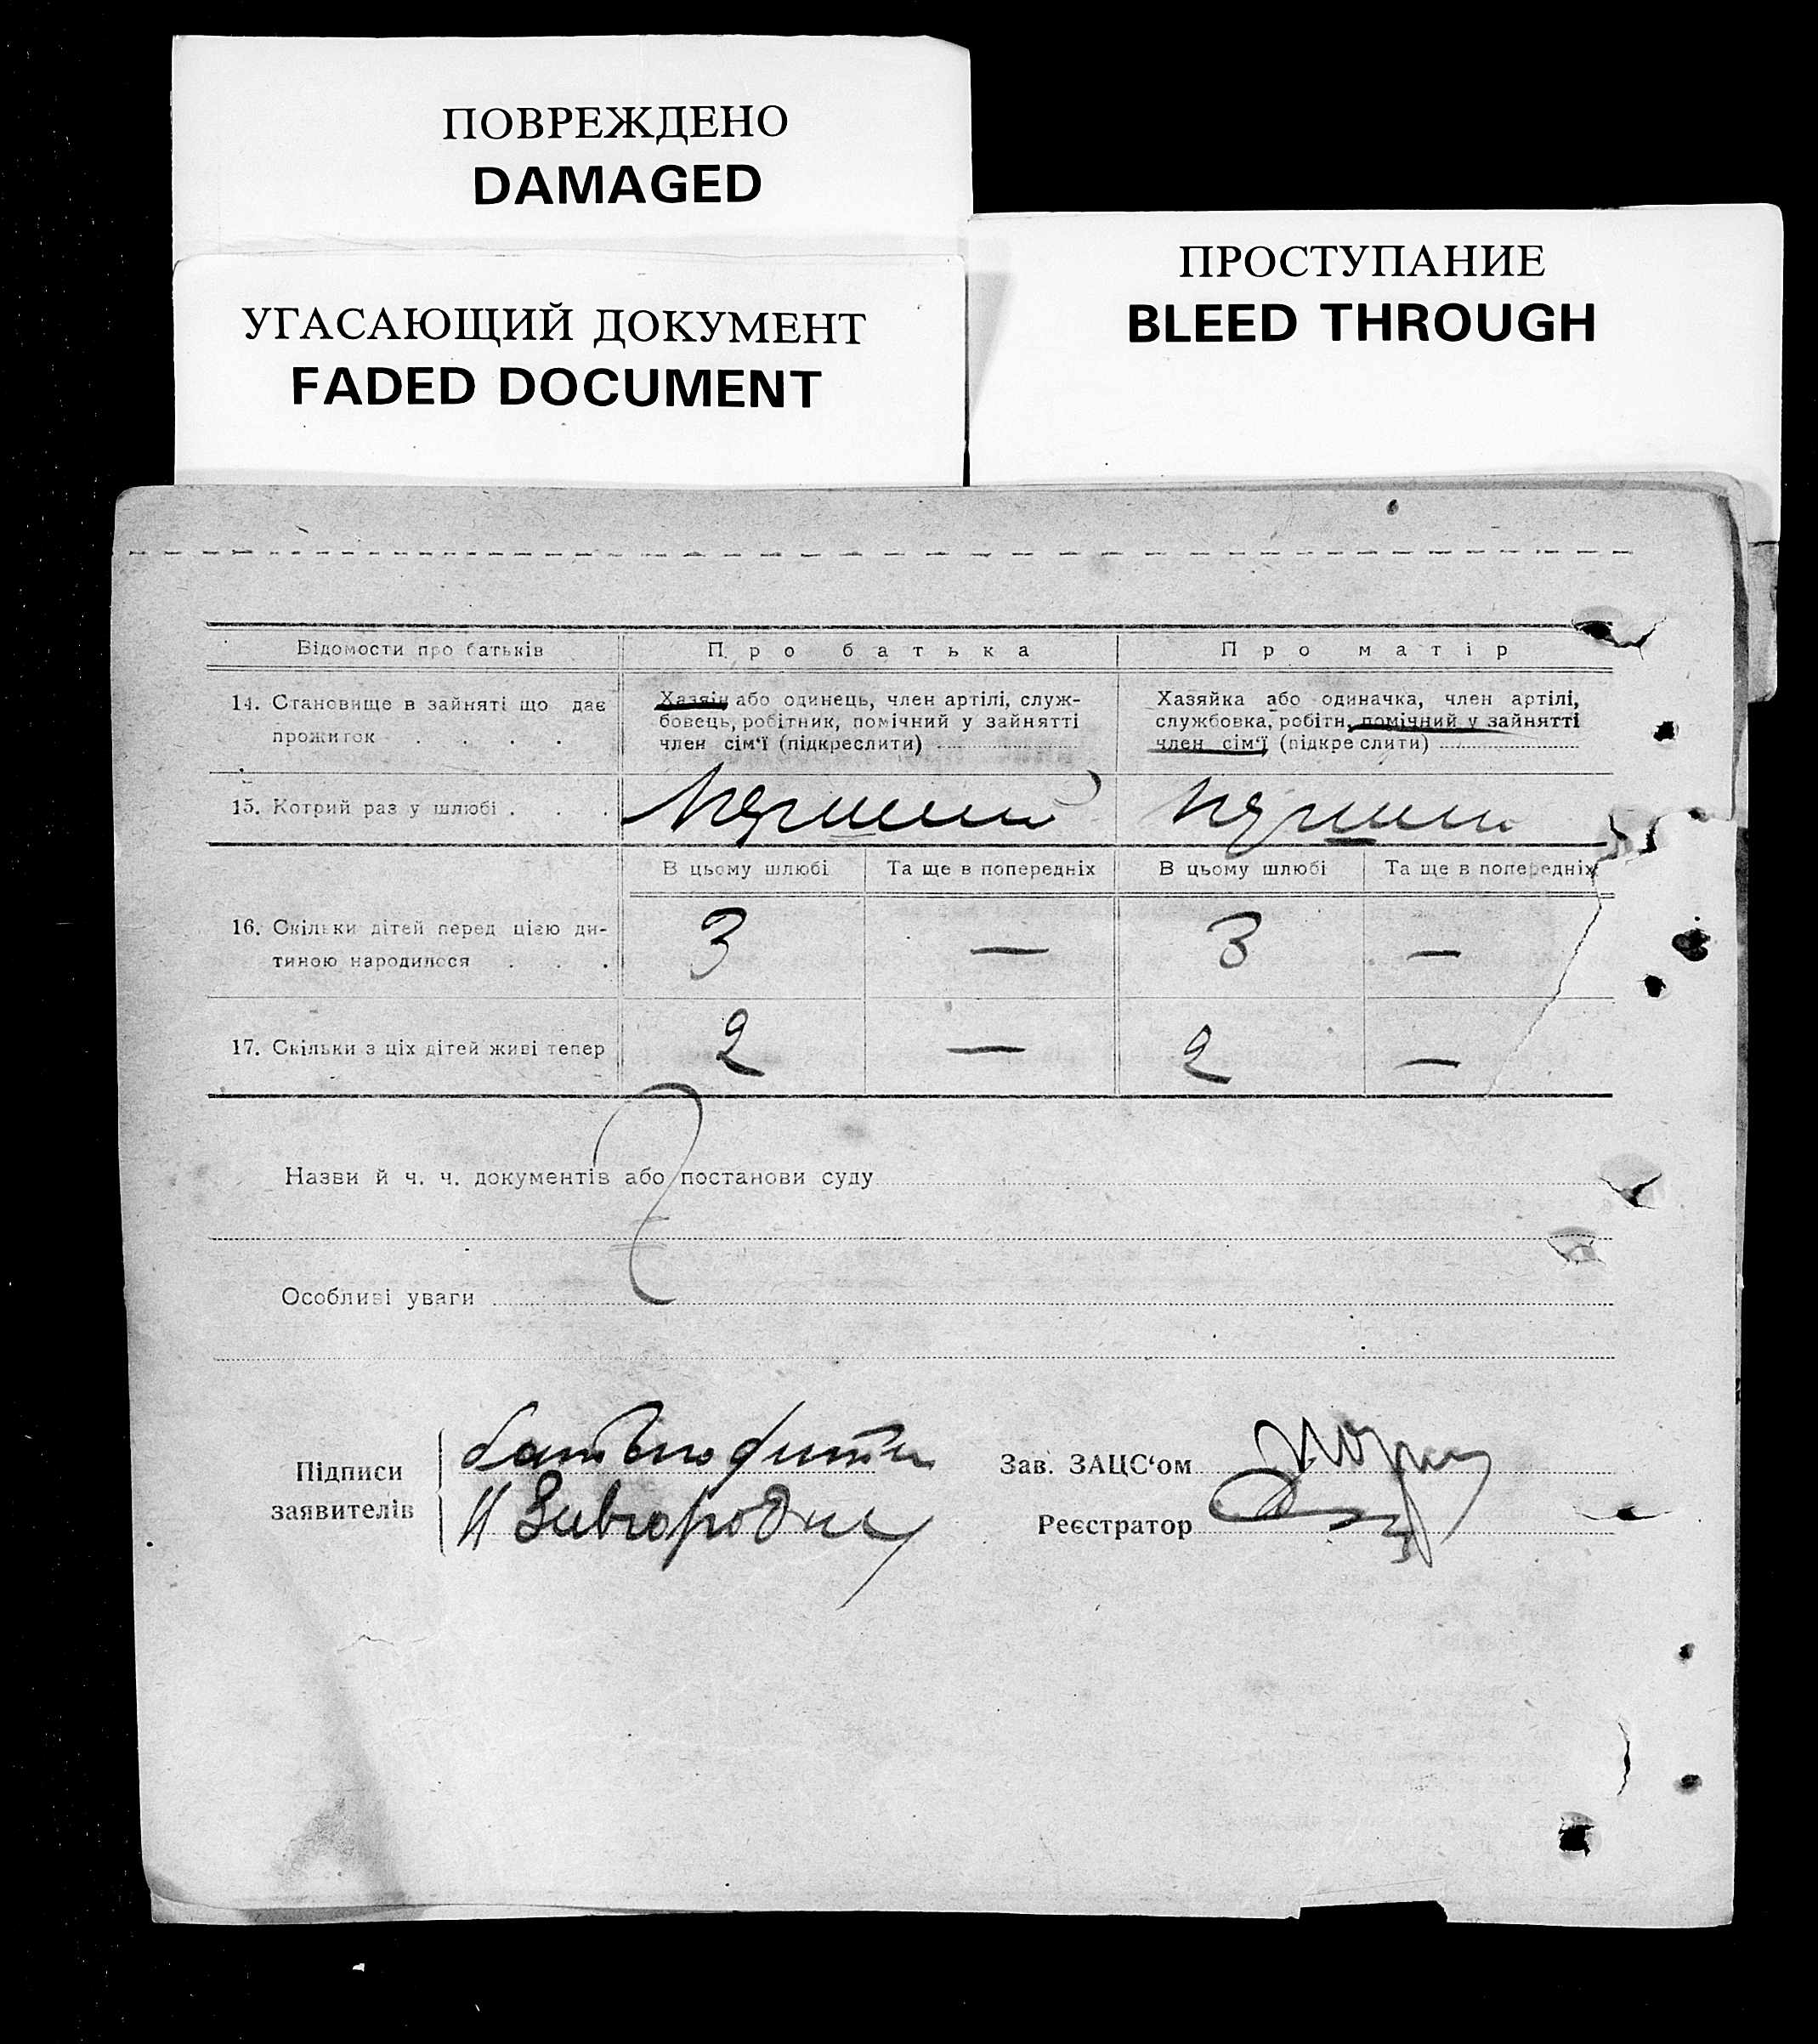 ПОВРЕЖДЕНО
DAMAGED
УГАСАЮЩИЙ ДОКУМЕНТ
FADED DOCUMENT
ПРОСТУПАНИЕ
BLEED THROUGH
Відомости про батьків
Про батька
Про матір
14. Становище в зайняті що дає
прожиток . . . .
Хазяїн або одинець, член артілі, служ-
бовець, робітник, помічний у зайнятті
член сім'ї (підкреслити)
Хазяйка або одиначка, член артілі,
службовка, робітн, помічний у зайнятті
член сім'ї (підкреслити)
15. Котрий раз у шлюбі . . .
В цьому шлюбі
Та ще в попередніх
В цьому шлюбі
Та ще в попередніх
16. Скільки дітей перед цією ди-
тиною народилося . . .
3 — 3 —
17. Скільки з ціх дітей живі тепер
2 — 2 —
Назви й ч. ч. документів або постанови суду
Особливі уваги
Підписи
заявителів
батько дитини
Зав. ЗАЦС'ом
Реєстратор